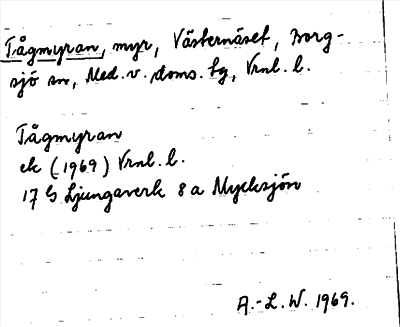 Tågmyran, myr, Västernäset, Borg-
sjö sn, Med. v. doms. tg, Vrnl. l.
Tågmyran
ek (1969) Vrnl. l.
17 G Ljungaverk 8 a Mycksjön
A.-L. W. 1969.